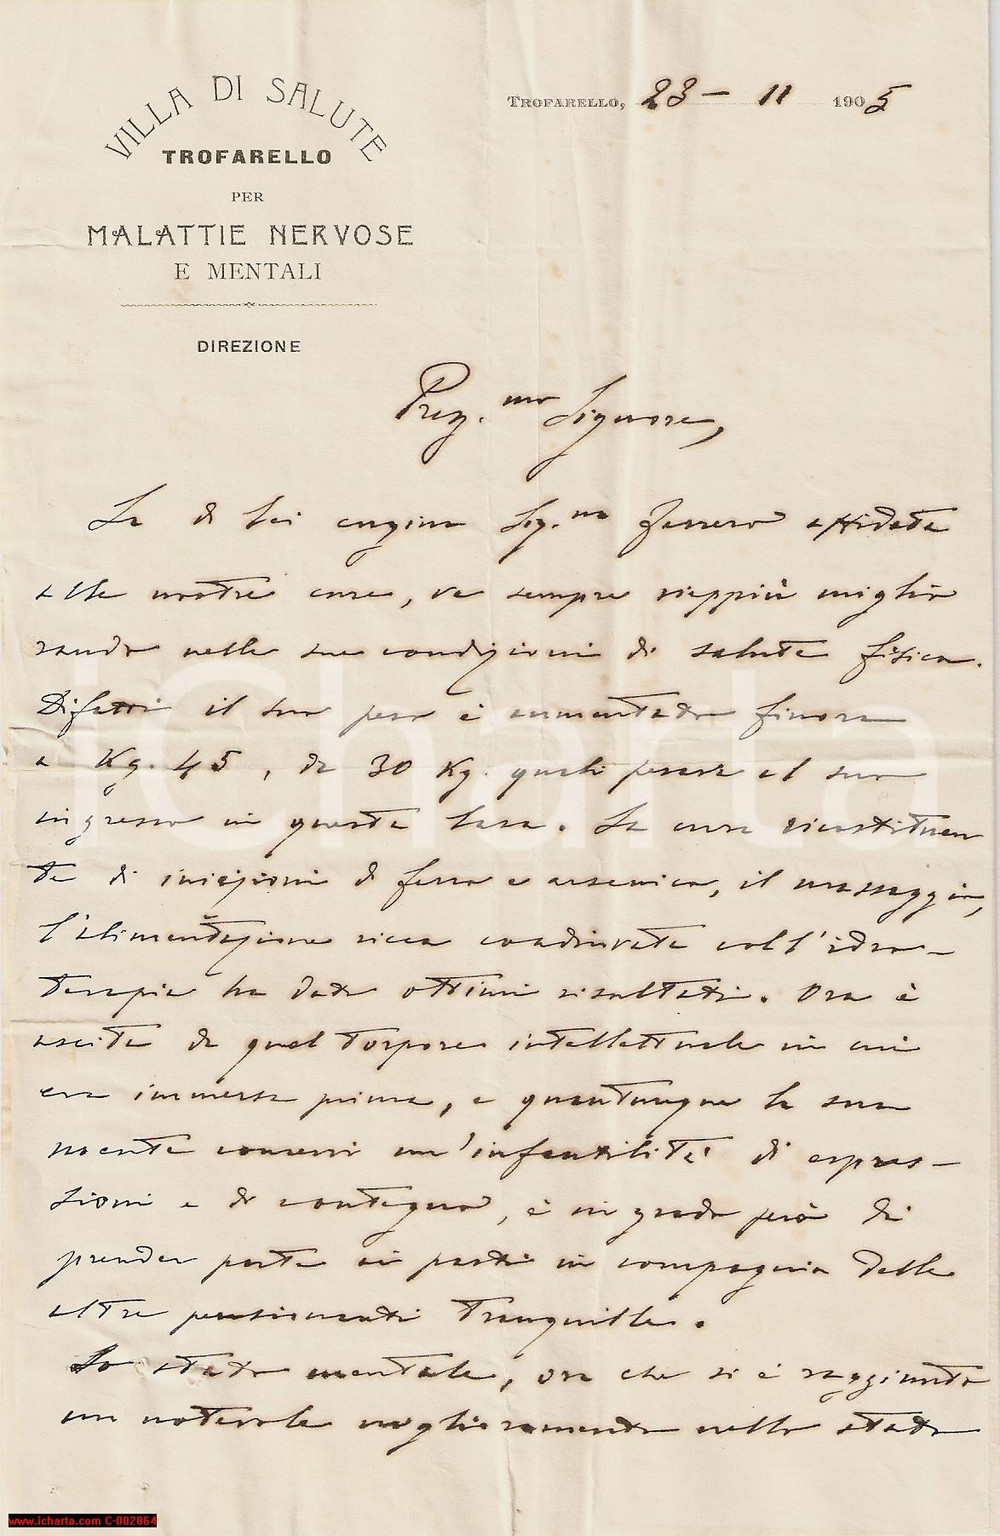 VILLA DI SALUTE
TROFARELLO
PER
MALATTIE NERVOSE
E MENTALI
DIREZIONE
TROFARELLO, 23 - 11 1905
Prez.mo Signore,
La di Lei cugina Sig.na Ferrero affidata
alle nostre cure, va sempre vieppiù miglio
rando nelle sue condizioni di salute fisica.
Difatti il suo peso è aumentato finora
a Kg. 45, da 30 Kg. quali pesava al suo
ingresso in questa Casa. La cura ricostituen
te di iniezioni di ferro e arsenico, il massaggio,
l'alimentazione ricca coadiuvata coll'idro-
terapia ha dato ottimi risultati. Ora è
uscita da quel torpore intellettuale in cui
era immersa prima, e quantunque la sua
mente conservi un'infantilità di espres-
sioni e di contegno, è in grado però di
prender parte ai pasti in compagnia delle
altre pensionanti tranquille.
Lo stato mentale, ora che si è raggiunto
un notevole miglioramento nello stato
iCharta
www.icharta.com C-002864